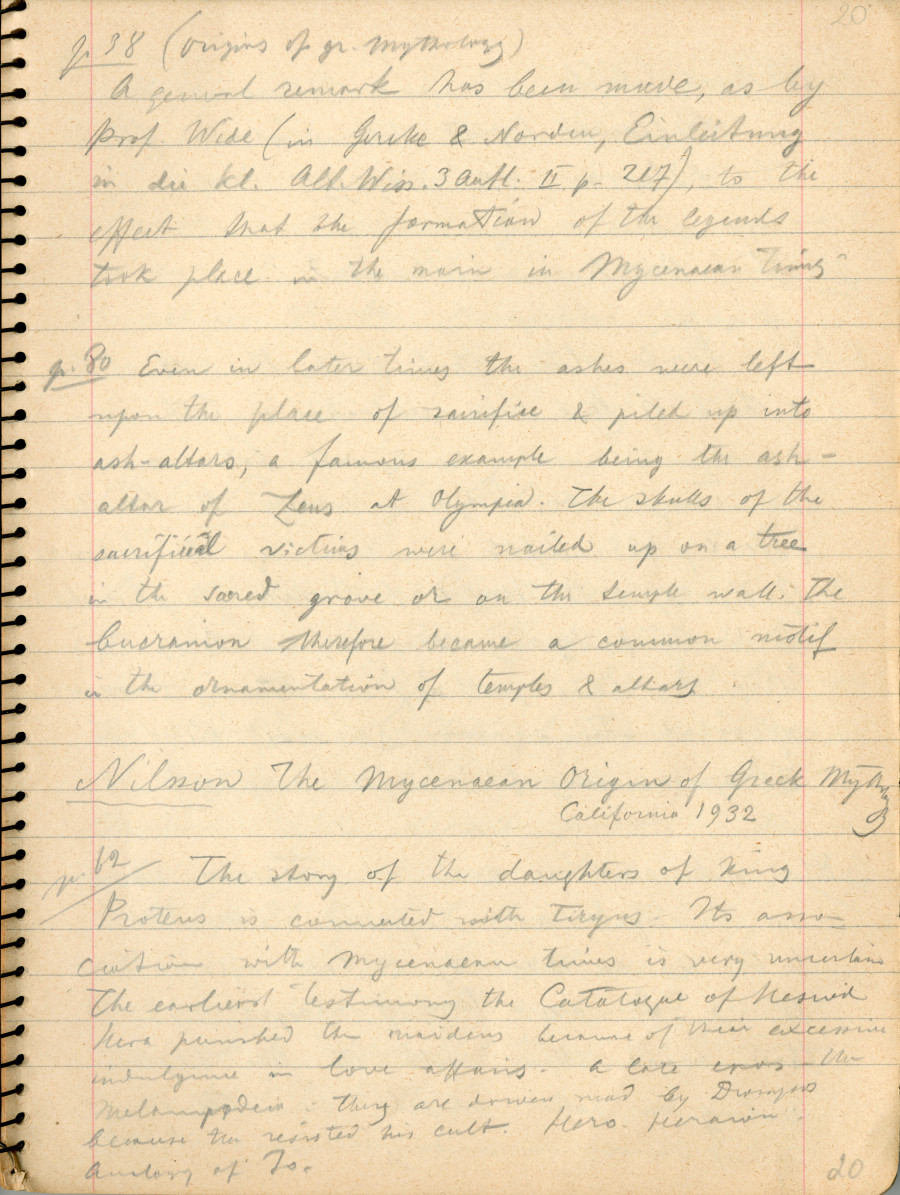 20
p. 38 (Origins of gr. Mythology)
A general remark has been made, as by
Prof. Wide (in Gercke & Norden, Einleitung
in die kl. Alt. Wiss. 3 Aufl. II p. 217), to the
effect that the formation of the legends
took place in the main in Mycenaean times
p. 80 Even in later times the ashes were left
upon the place of sacrifice & piled up into
ash-altars, a famous example being the ash-
altar of Zeus at Olympia. The skulls of the
sacrificial victims were nailed up on a tree
in the sacred grove or on the temple wall. The
bucranion therefore became a common motif
in the ornamentation of temples & altars.
Nilsson The Mycenaean Origin of Greek Mythology
California 1932
p. 62 The story of the daughters of King
Proteus is connected with Tiryns. Its asso-
ciation with Mycenaean times is very uncertain
The earliest testimony the Catalogue of Hesiod
Hera punished the maidens because of their excessive
indulgence in love affairs. A late epos - the
Melampodeia. they are driven mad by Dionysos
because they resisted his cult. Hera. Heraion.
Analogy of Io.
20